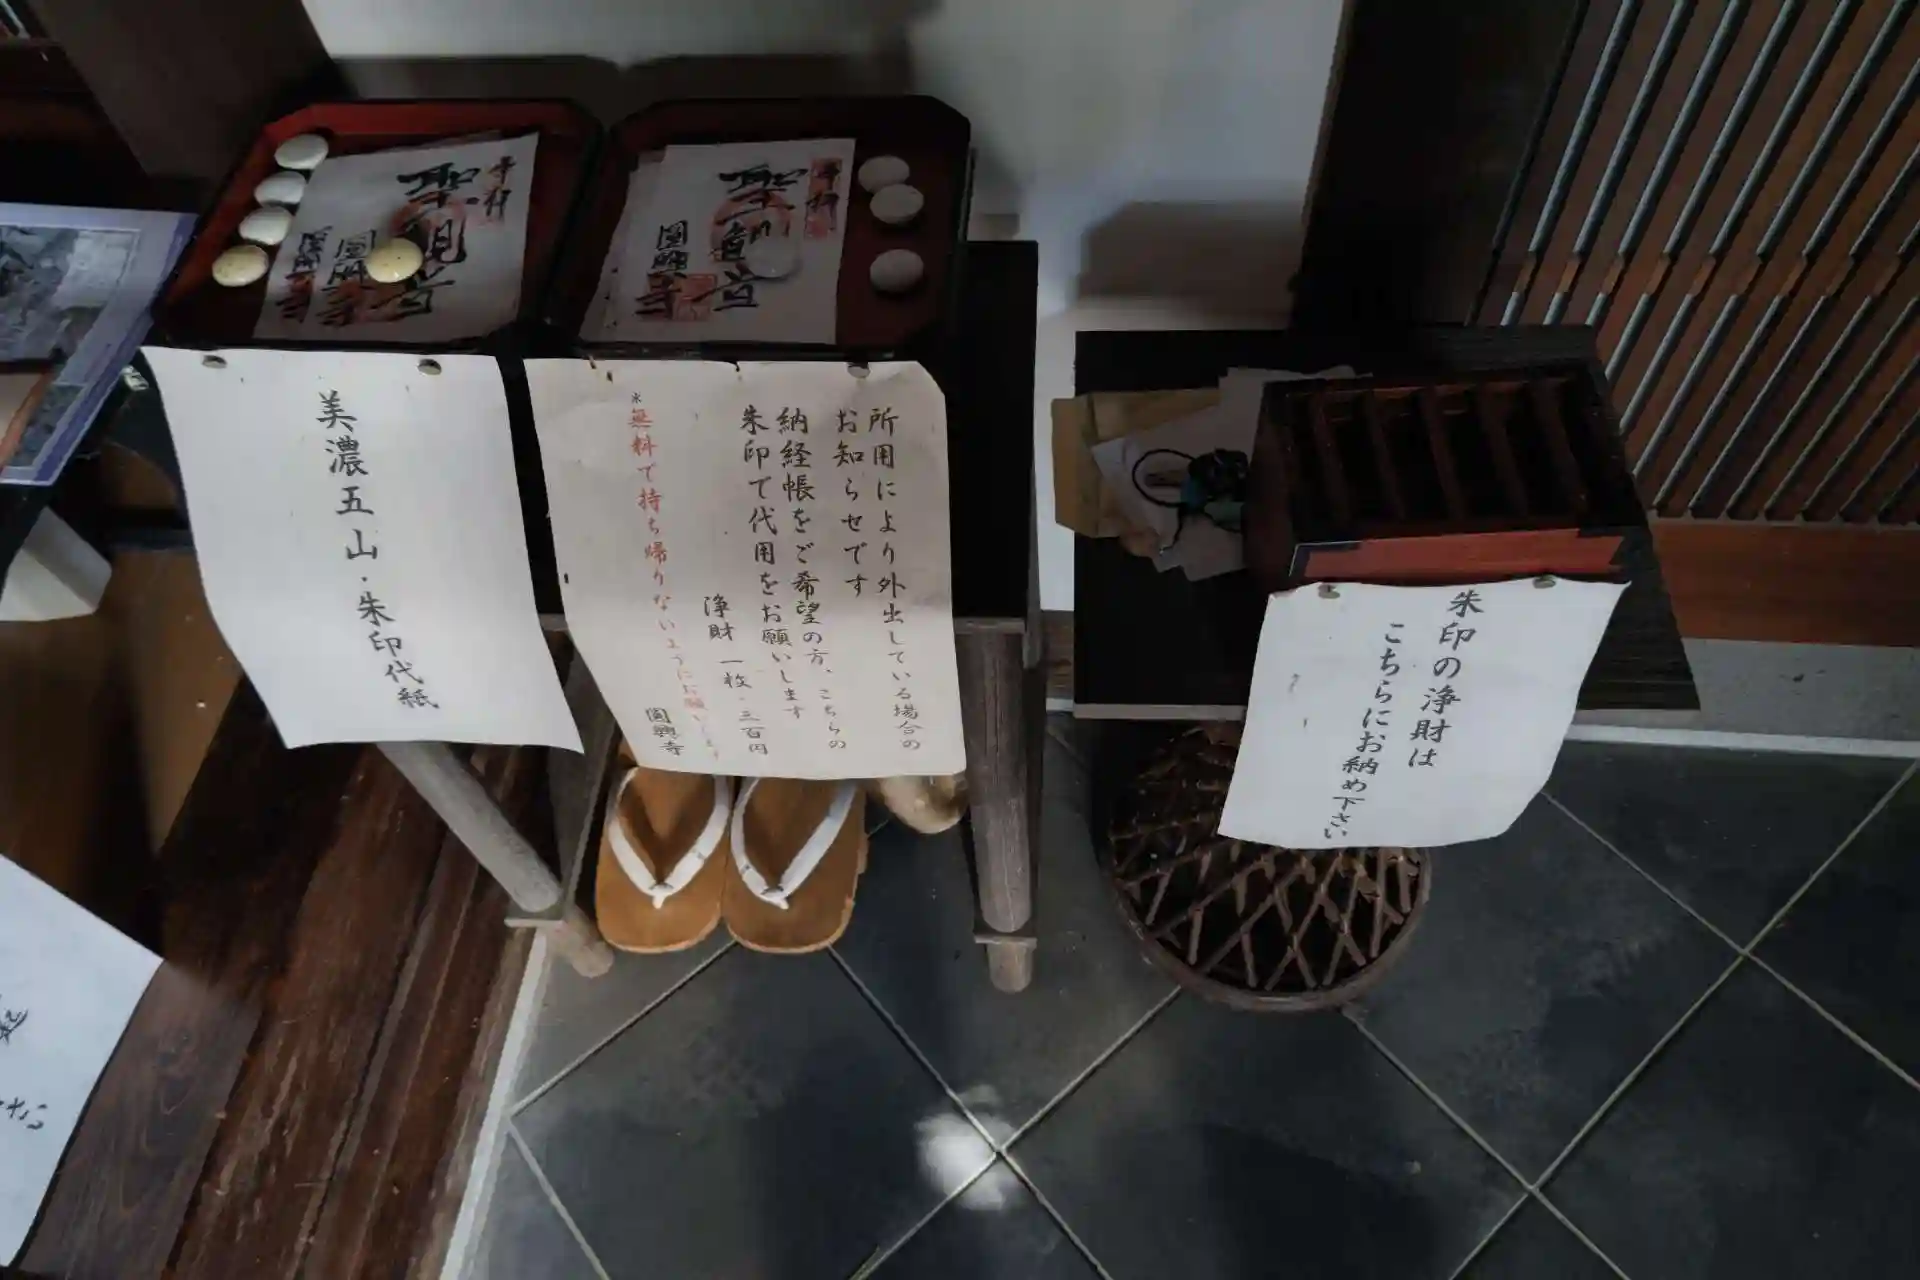 奉拝
聖観音
圓興寺
奉拝
聖観音
圓興寺
美濃五山・朱印代紙
所用により外出している場合の
お知らせです
納経帳をご希望の方、こちらの
朱印で代用をお願いします
浄財 一枚・三百円
※無料で持ち帰りないようにお願いします
圓興寺
朱印の浄財は
こちらにお納め下さい